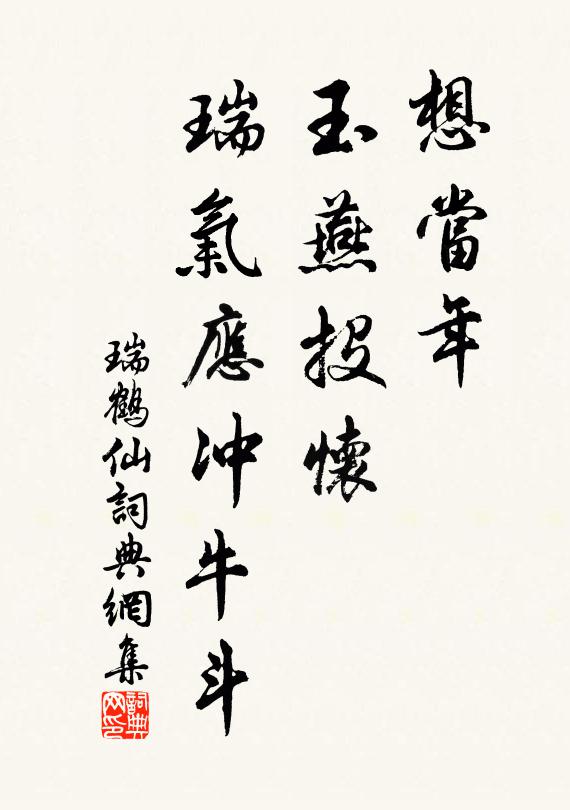 想當年
玉燕投懷
瑞氣應冲牛斗
瑞鶴仙詞典網集
詞典網印